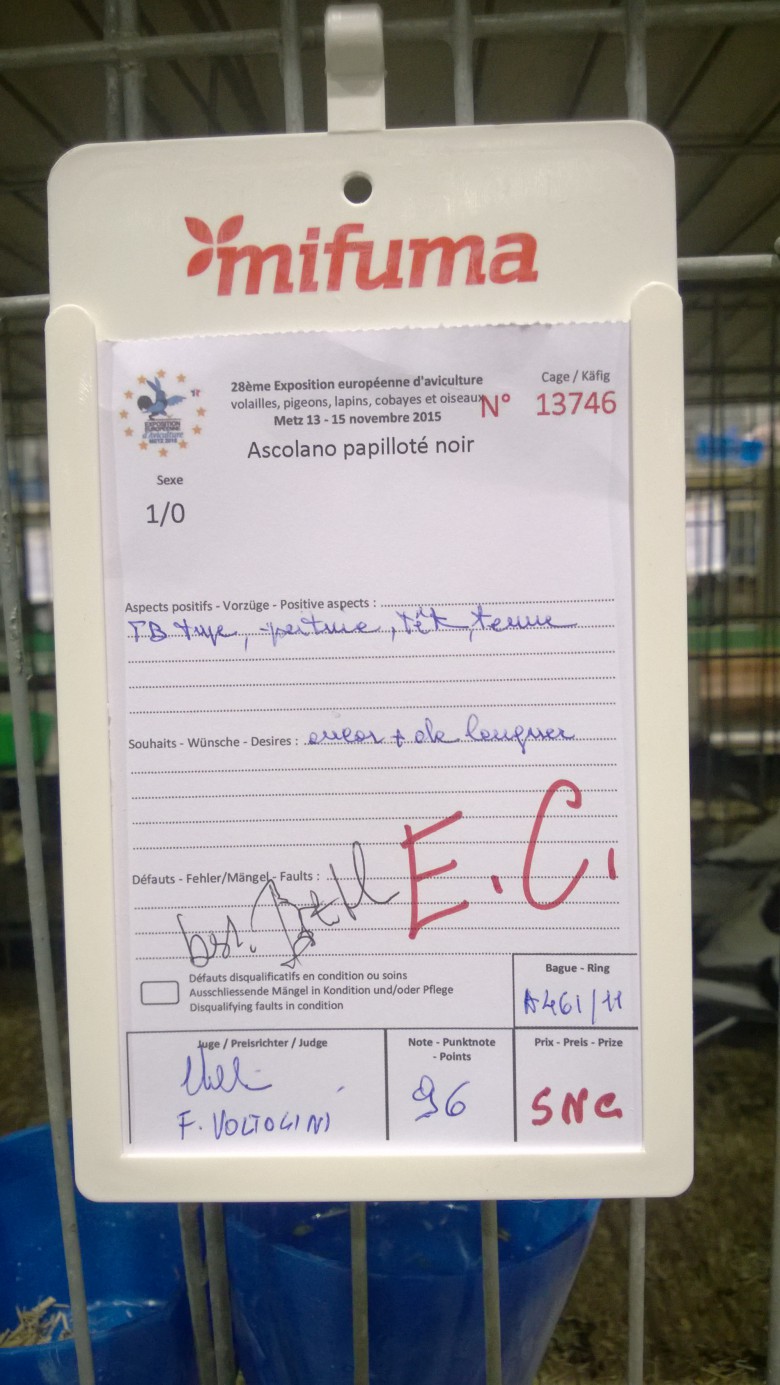 mifuma
28ème Exposition européenne d'aviculture
volailles, pigeons, lapins, cobayes et oiseaux
Metz 13 - 15 novembre 2015
Cage / Käfig
N° 13746
Ascolano papilloté noir
Sexe
1/0
Aspects positifs - Vorzüge - Positive aspects :
TB type, tête, tenue
Souhaits - Wünsche - Desires : encor + de longueur
E.C.
Défauts - Fehler/Mängel - Faults :
Défauts disqualificatifs en condition ou soins
Ausschliessende Mängel in Kondition und/oder Pflege
Disqualifying faults in condition
Bague - Ring
A461/11
Juge / Preisrichter / Judge
F. VOLTOLINI
Note - Punktnote
- Points
96
Prix - Preis - Prize
SNC